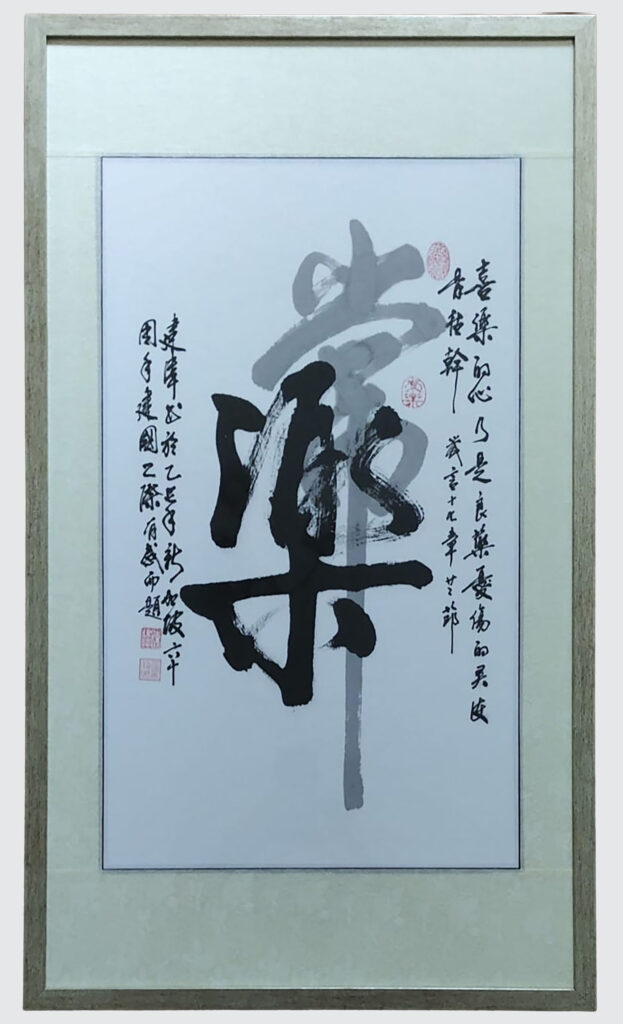 常樂
喜樂的心乃是良藥憂傷的灵使
骨枯幹
箴言十七章廿二節
建书於乙巳年新加坡六十
周年建國之際有感而題